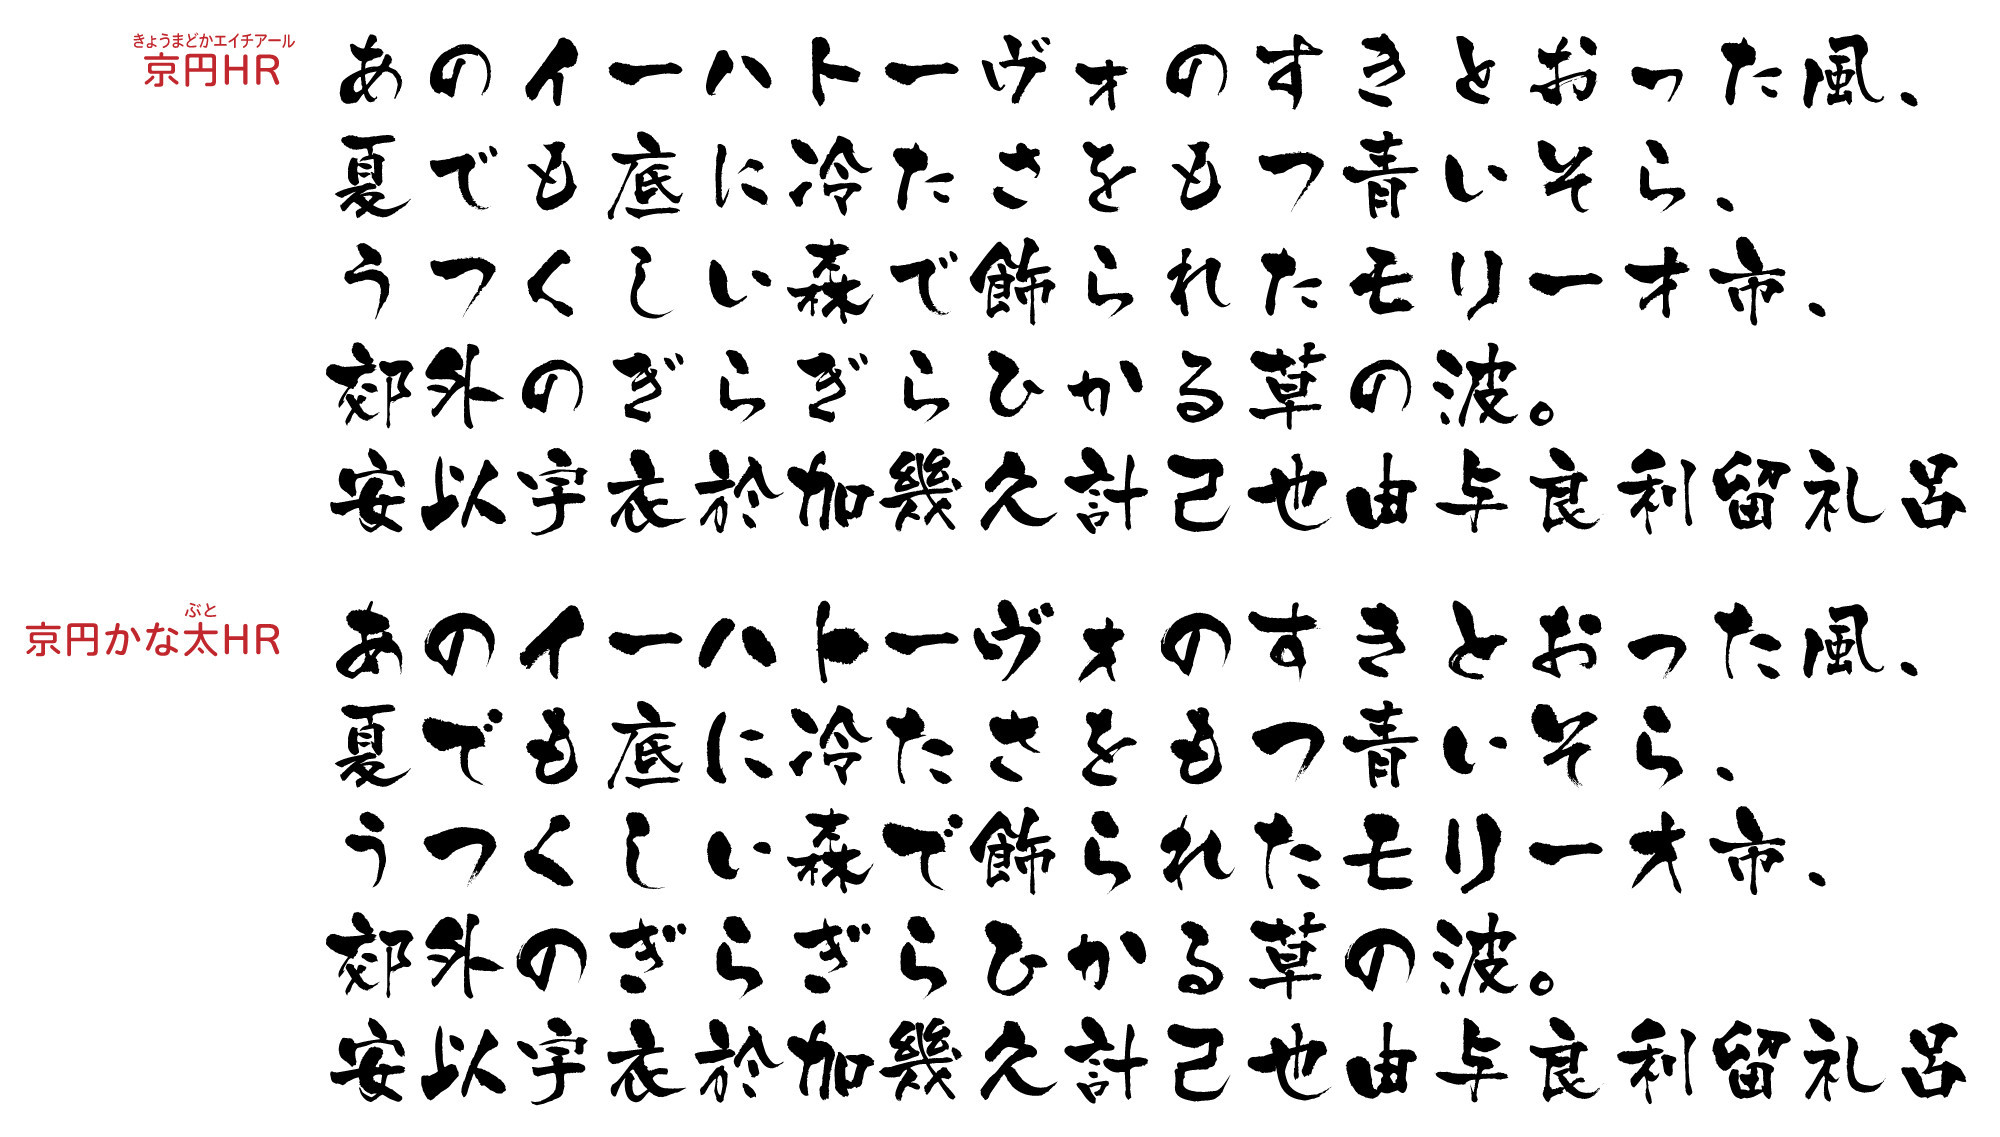 きょうまどかエイチアール
京円HR
あのイーハトーヴォのすきとおった風、
夏でも底に冷たさをもつ青いそら、
うつくしい森で飾られたモリーオ市、
郊外のぎらぎらひかる草の波。
安以宇衣於加幾久計己也由与良利留礼呂
ぶと
京円かな太HR
あのイーハトーヴォのすきとおった風、
夏でも底に冷たさをもつ青いそら、
うつくしい森で飾られたモリーオ市、
郊外のぎらぎらひかる草の波。
安以宇衣於加幾久計己也由与良利留礼呂